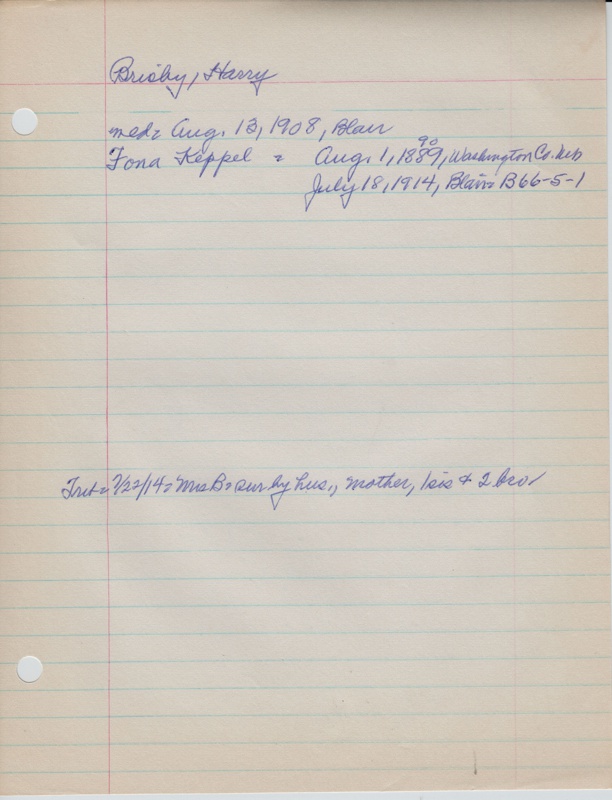 Brisby, Harry
med= Aug. 13, 1908, Blair
90
Fona Keppel = Aug. 1, 1889, Washington Co. Neb
July 18, 1914, Blair= B66-5-1
Trib= 7/22/14= Mrs B= sur by hus., mother, 1 sis & 2 bro.